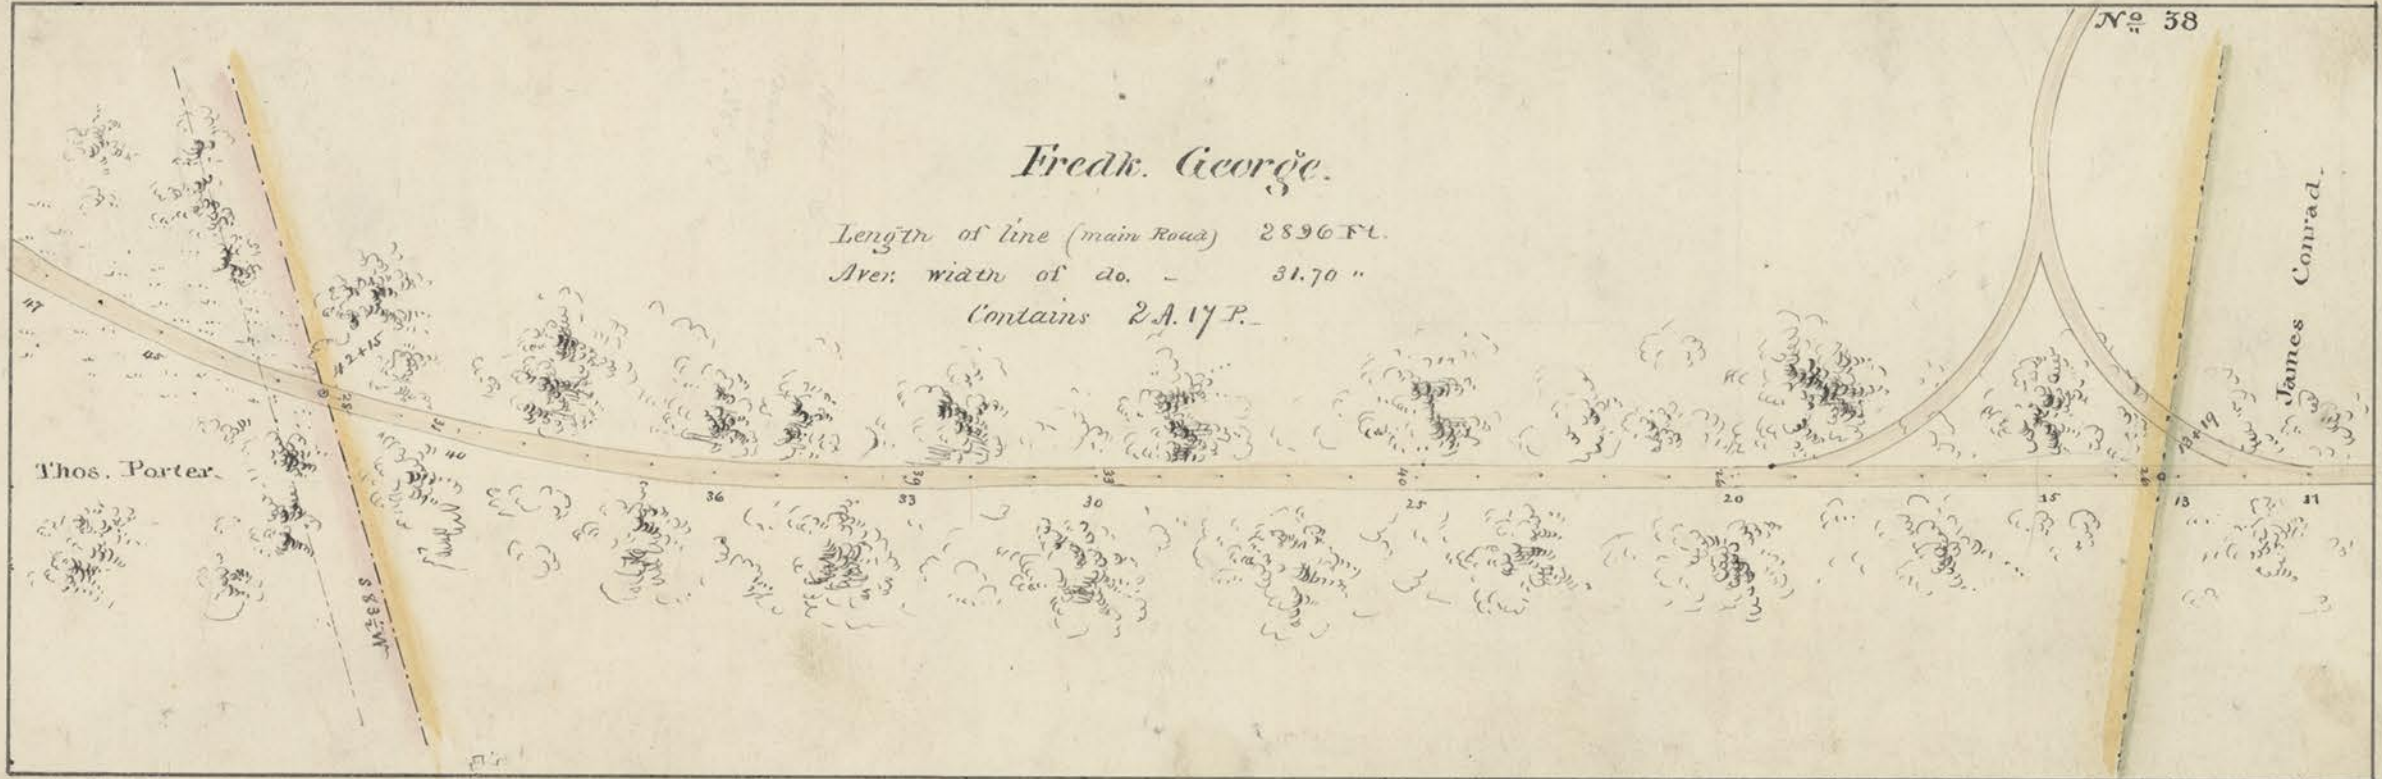 Nº 38
Fredk. George.
Length of line (main Road) 2896 Ft.
Aver. width of do. - 31.70 "
Contains 2 A. 17 P.
James Conrad.
Thos. Porter.
47
45
42+15
28
31
40
36
39
33
33
30
40
25
26
20
15
26
13+19
13
11